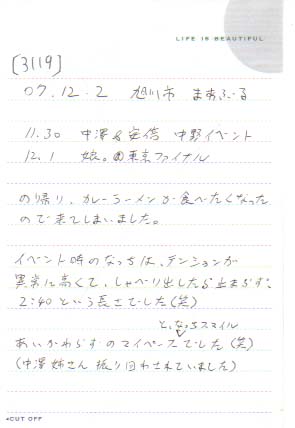 LIFE IS BEAUTIFUL
[3119]
07.12.2 旭川市 まあぶる
11.30 中澤&安倍 中野イベント
12.1 娘。㊷東京ファイナル
の帰り、カレーラーメンが食べたくなった
ので来てしまいました。
イベント時のなっちは、テンションが
異常に高くて、しゃべり出したら止まらず、
2:40という長さでした(笑)
と、なっちスマイル
あいかわらずのマイペースでした(笑)
(中澤姉さん振り回されていました)
◂CUT OFF